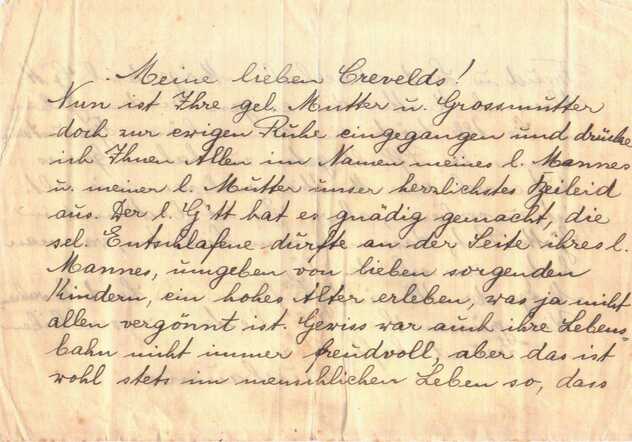 Meine lieben Crevelds!
Nun ist Ihre gel. Mutter u. Grossmutter
doch zur ewigen Ruhe eingegangen und drücke
ich Ihnen Allen im Namen meines l. Mannes
u. meiner l. Mutter unser herzlichstes Beileid
aus. Der l. G'tt hat es gnädig gemacht, die
sel. Entschlafene durfte an der Seite ihres l.
Mannes, umgeben von lieben sorgenden
Kindern, ein hohes Alter erleben, was ja nicht
allen vergönnt ist. Gewiss war auch ihre Lebens=
bahn nicht immer freudvoll, aber das ist
wohl stets im menschlichen Leben so, dass